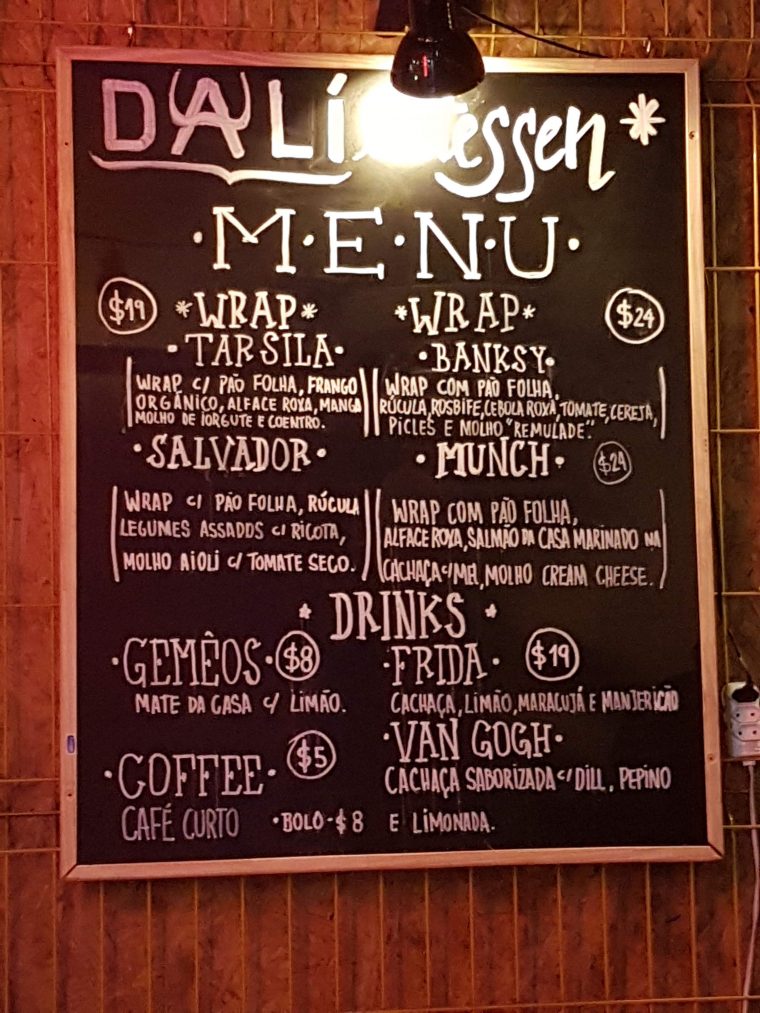 DALí essen *
·M·E·N·U·
$19 *WRAP*
·TARSILA·
WRAP C/ PÃO FOLHA, FRANGO
ORGÂNICO, ALFACE ROXA, MANGA
MOLHO DE IORGUTE E COENTRO.
·SALVADOR·
WRAP C/ PÃO FOLHA, RÚCULA
LEGUMES ASSADOS C/ RICOTA,
MOLHO AIOLI C/ TOMATE SECO.
*WRAP* $24
·BANKSY·
WRAP COM PÃO FOLHA,
RÚCULA, ROSBIFE, CEBOLA ROXA, TOMATE, CEREJA,
PICLES E MOLHO "REMULADE".
·MUNCH· $24
WRAP COM PÃO FOLHA,
ALFACE ROXA, SALMÃO DA CASA MARINADO NA
CACHAÇA C/ MEL, MOLHO CREAM CHEESE.
* DRINKS *
·GEMÊOS· $8
MATE DA CASA C/ LIMÃO.
·COFFEE· $5
CAFÉ CURTO ·BOLO-$8
·FRIDA· $19
CACHAÇA, LIMÃO, MARACUJÁ E MANJERICÃO
·VAN GOGH·
CACHAÇA SABORIZADA C/ DILL, PEPINO
E LIMONADA.